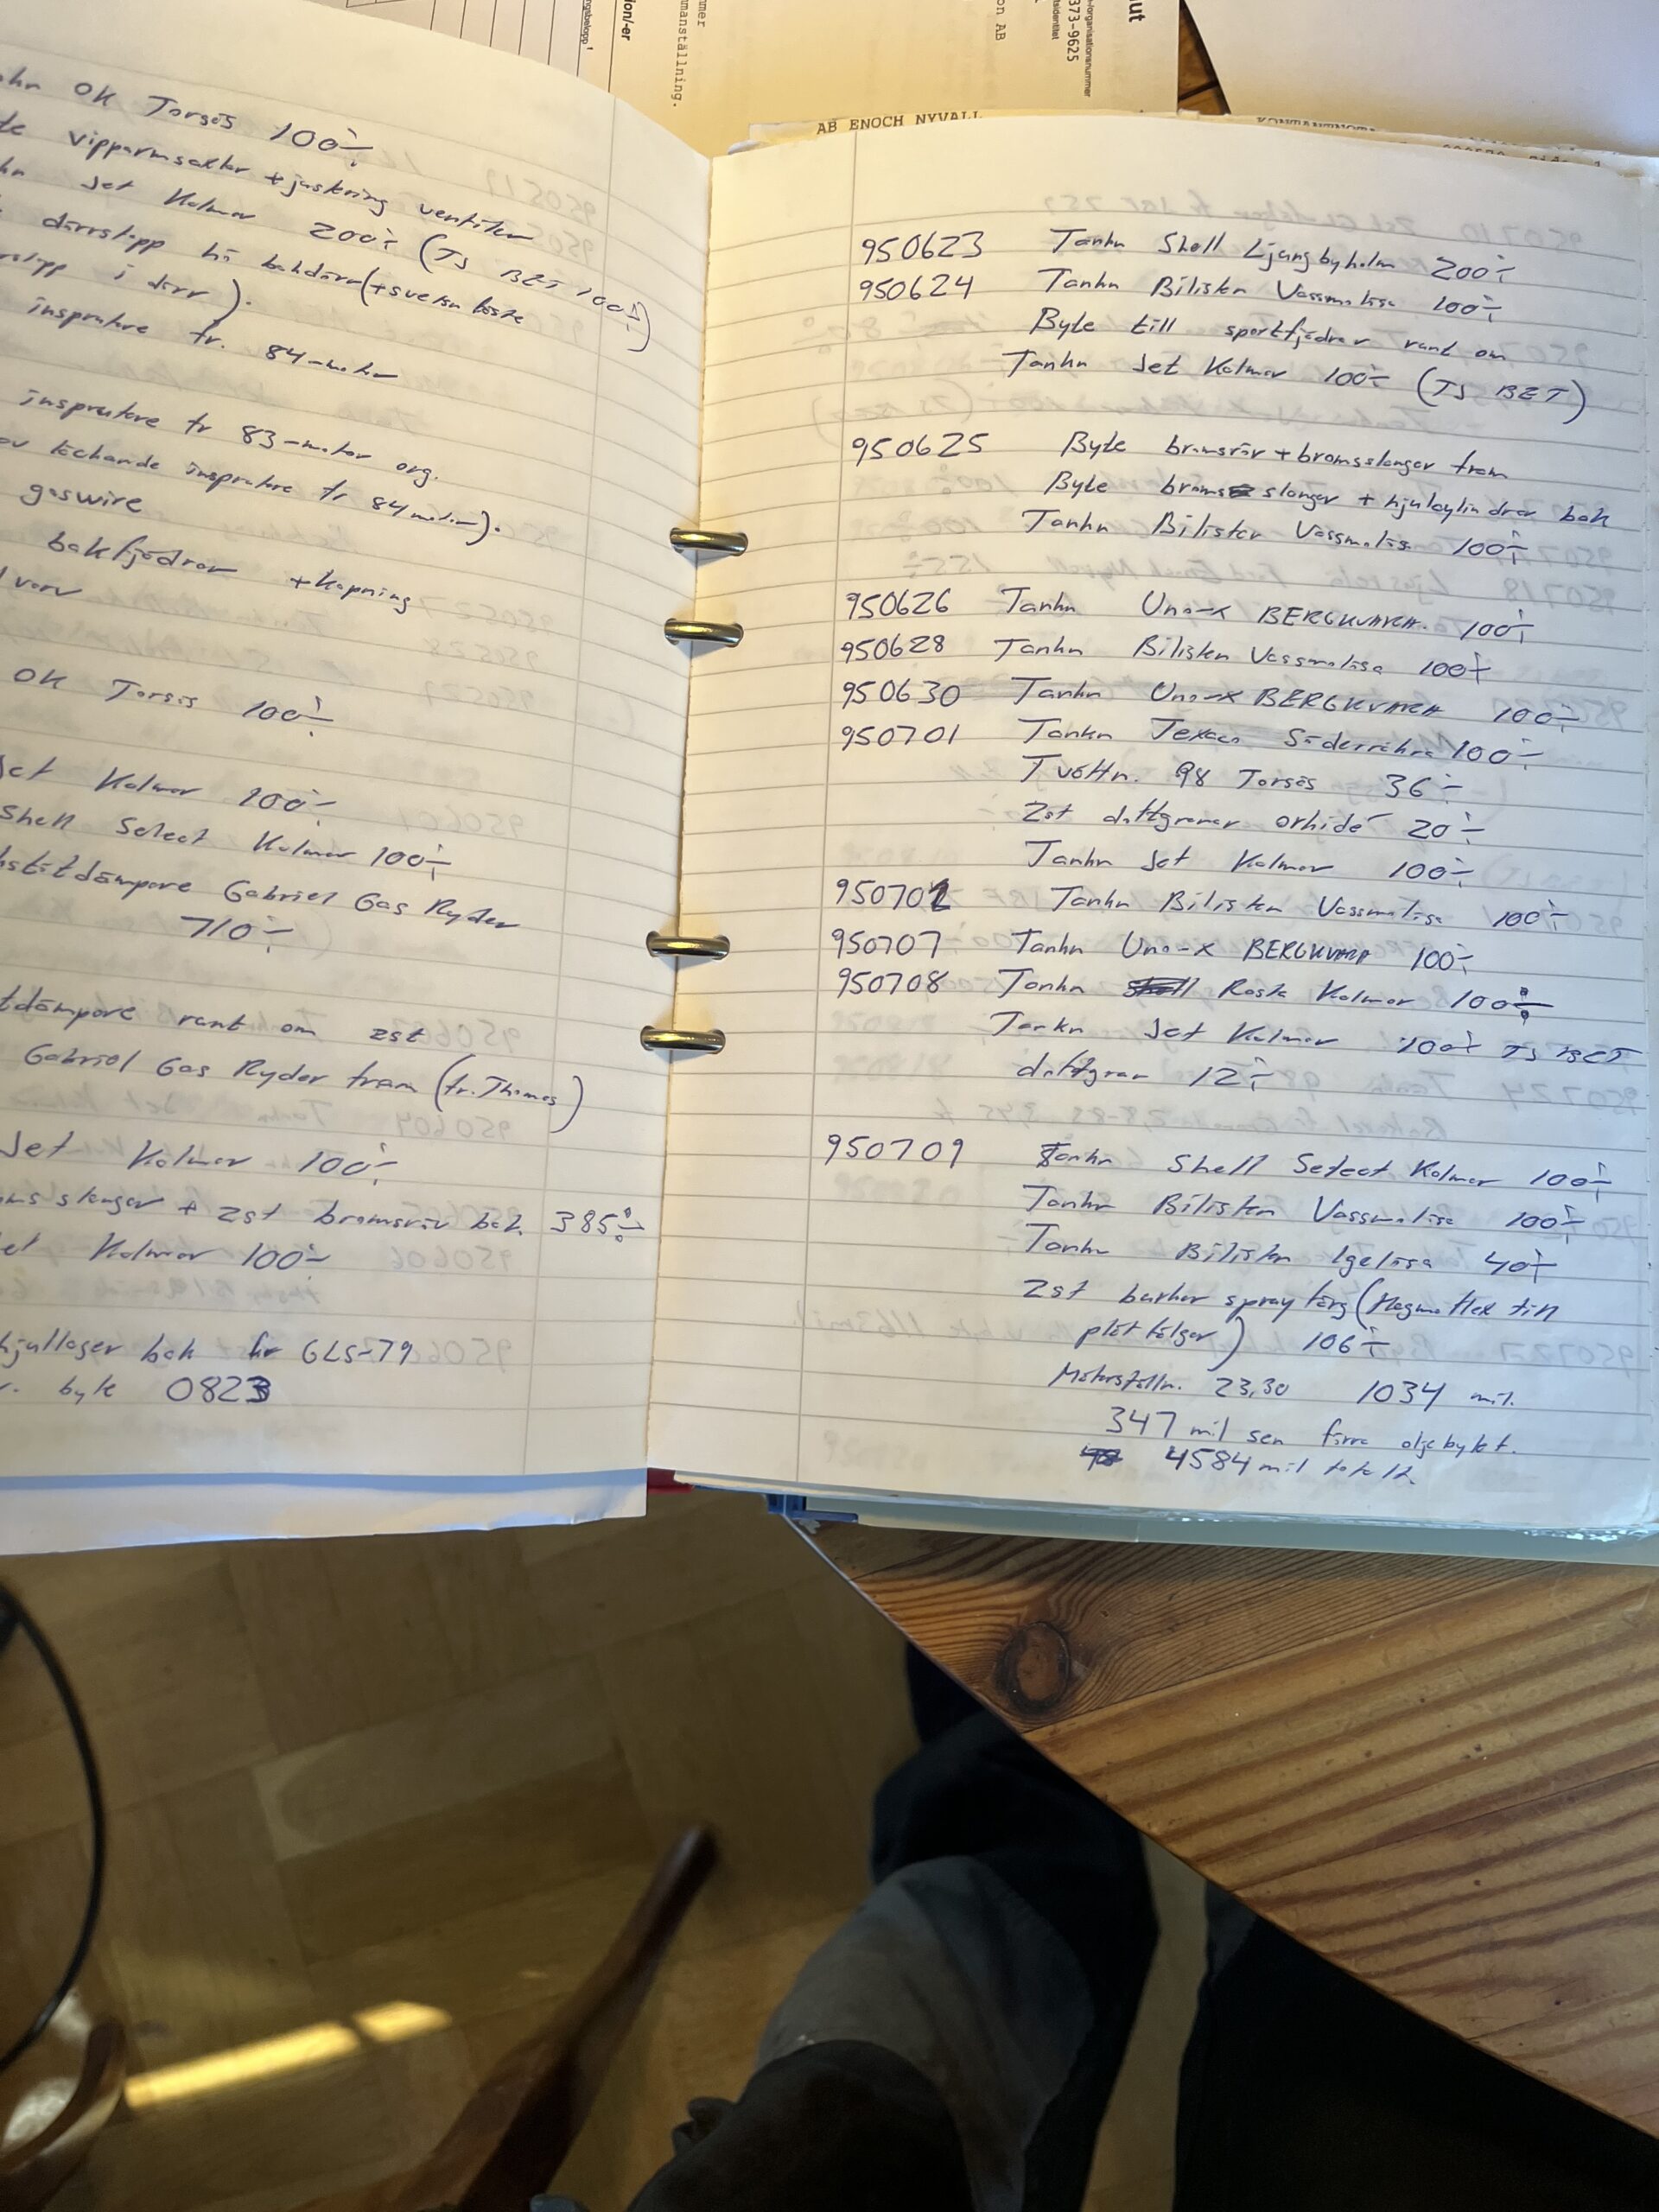 mmanställning.
on AB
373-9625
AB ENOCH NYVALL
KONTANTNOTA
OK Torsås 100:-
vipparmsaxlar + justering ventiler
Jet Kalmar 200:- (TJ BET 100:-)
dörrstopp hö bakdörr (+svetsn fäste
i dörr).
insprutare fr. 84-motor
insprutare fr 83-motor org.
läckande insprutare fr 84 motor).
gaswire
bakfjädrar + kapning
varv
OK Torsås 100:-
Jet Kalmar 100:-
Shell Select Kalmar 100:-
stötdämpare Gabriel Gas Ryder
710:-
tdämpare runt om 2st
Gabriel Gas Ryder fram (fr. Thomas)
Jet Kalmar 100:-
slangar + 2st bromsrör bak 385:-
et Kalmar 100:-
hjullager bak för GLS-79
byte 0823
950623 Tankn Shell Ljungbyholm 200:-
950624 Tankn Bilisten Vassmolösa 100:-
Byte till sportfjädrar runt om
Tankn Jet Kalmar 100:- (TJ BET)
950625 Byte bromsrör + bromsslangar fram
Byte bromsslangar + hjulcylindrar bak
Tankn Bilisten Vassmolösa 100:-
950626 Tankn Uno-X BERGKVARA. 100:-
950628 Tankn Bilisten Vassmolösa 100:-
950630 Tankn Uno-X BERGKVARA 100:-
950701 Tankn Texaco Söderåkra 100:-
Tvättn. Q8 Torsås 36:-
2st doftgranar orkidé 20:-
Tankn Jet Kalmar 100:-
950702 Tankn Bilisten Vassmolösa 100:-
950707 Tankn Uno-X BERGKVARA 100:-
950708 Tankn Rasta Kalmar 100:-
Tankn Jet Kalmar 100:- TJ BET
doftgran 12:-
950709 Tankn Shell Select Kalmar 100:-
Tankn Bilisten Vassmolösa 100:-
Tankn Bilisten Igelösa 40:-
2st burkar sprayfärg (Magnaflex till
plåtfälgar) 106:-
Mätarställn. 23,30 1034 mil.
347 mil sen förra oljebytet.
4584 mil totalt.